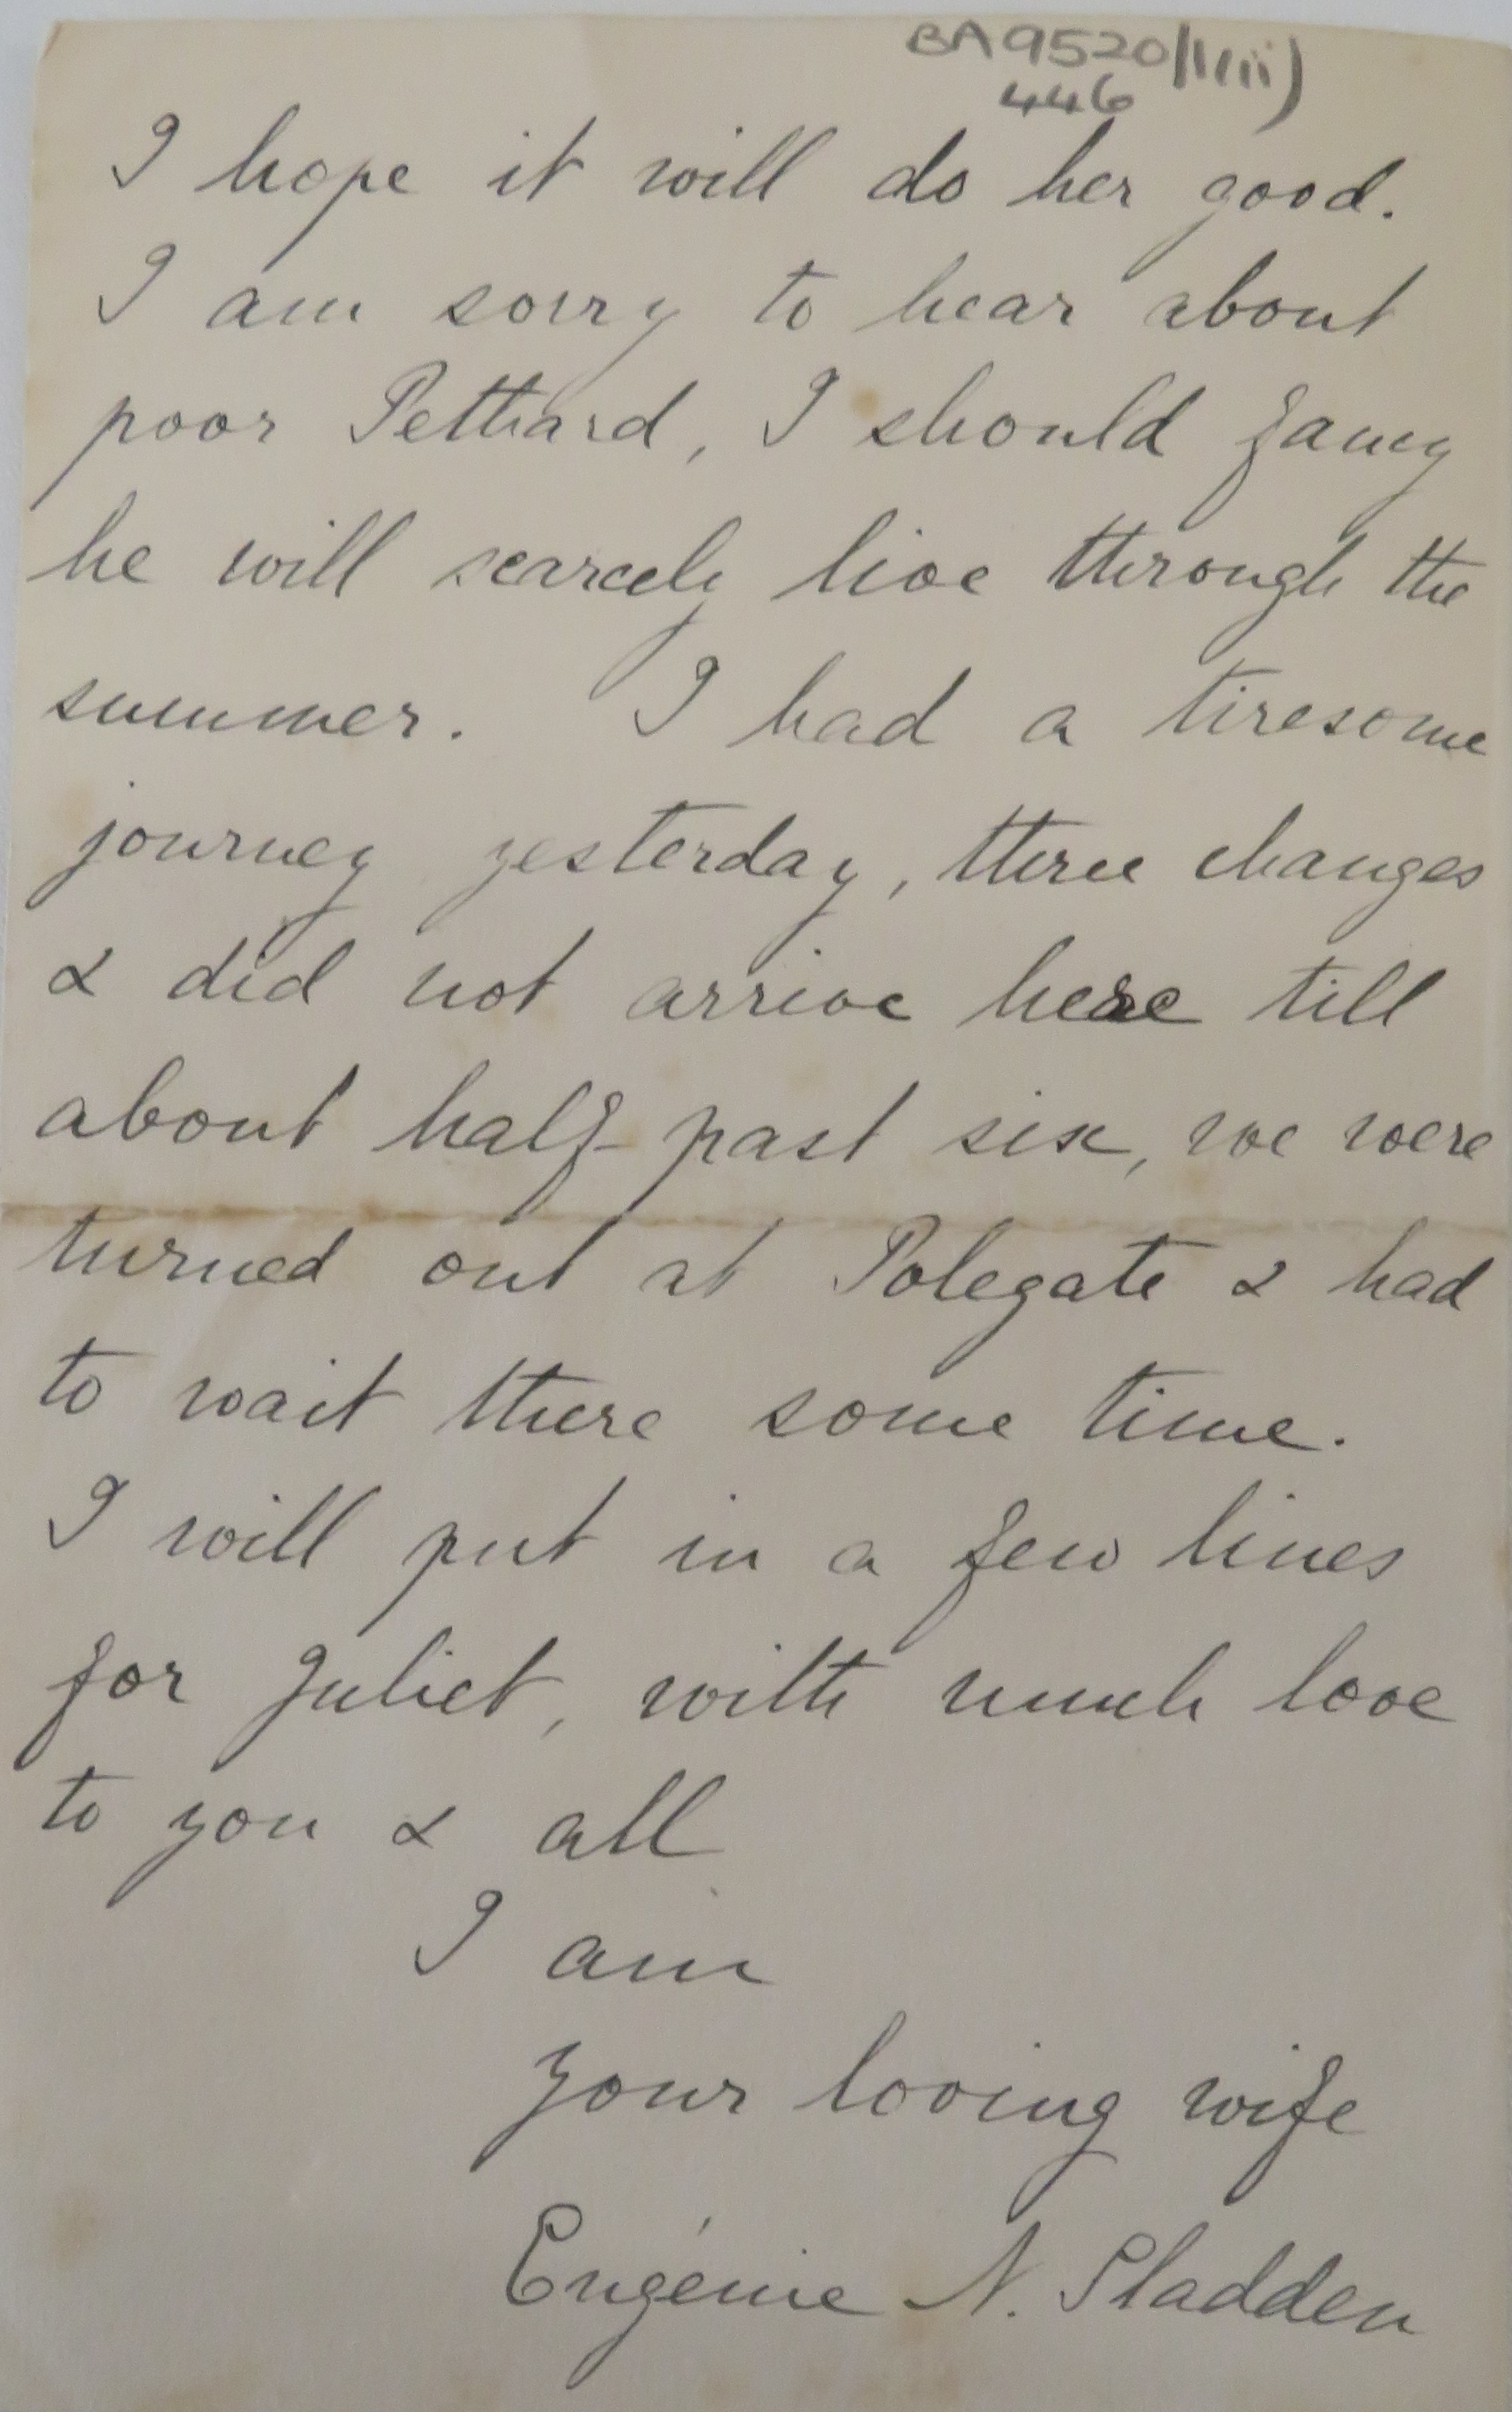 BA9520/1(iii)
446
I hope it will do her good.
I am sorry to hear about
poor Pethard, I should fancy
he will scarcely live through the
summer. I had a tiresome
journey yesterday, three changes
& did not arrive here till
about half-past six, we were
turned out at Polegate & had
to wait there some time.
I will put in a few lines
for Juliet, with much love
to you & all
I am
your loving wife
Eugénie N. Sladden